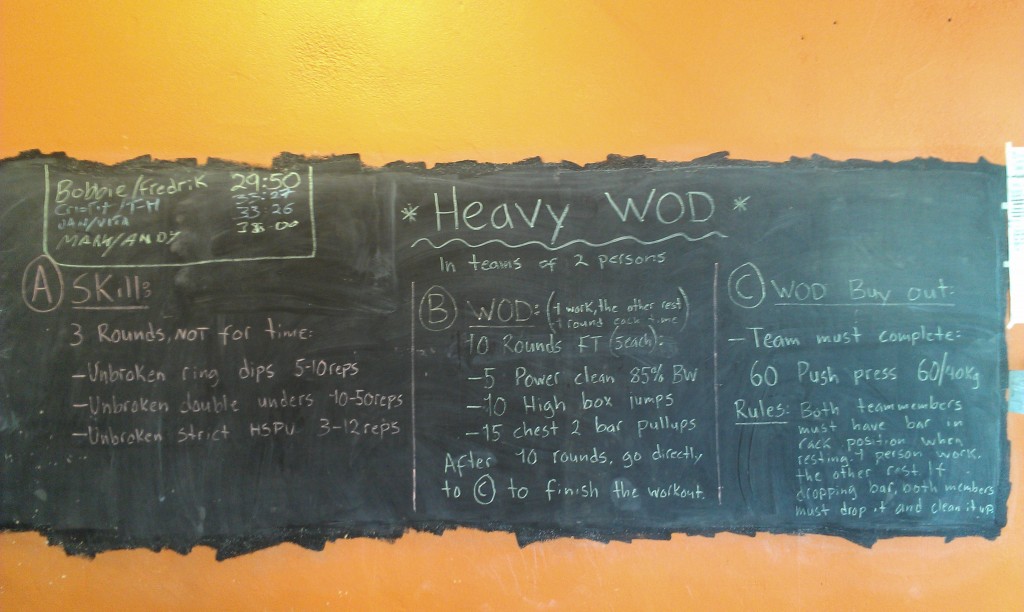 Bobbie/fredrik 29:50
33:26
JAN/VITA 38:00
MARK/ANDY
* Heavy WOD *
In teams of 2 persons
A SKills
3 Rounds, NOT for time:
-Unbroken ring dips 5-10reps
-Unbroken double unders 10-50reps
-Unbroken strict HSPU 3-12reps
B WOD: (1 work, the other rest
1 round each time)
10 Rounds FT (5each):
-5 Power clean 85% BW
-10 High box jumps
-15 chest 2 bar pullups
After 10 rounds, go directly
to C to finish the workout.
C WOD Buy out:
-Team must complete:
60 Push press 60/40kg
Rules: Both teammembers
must have bar in
rack position when
resting. 1 person work.
the other rest. If
dropping bar, both members
must drop it and clean it up